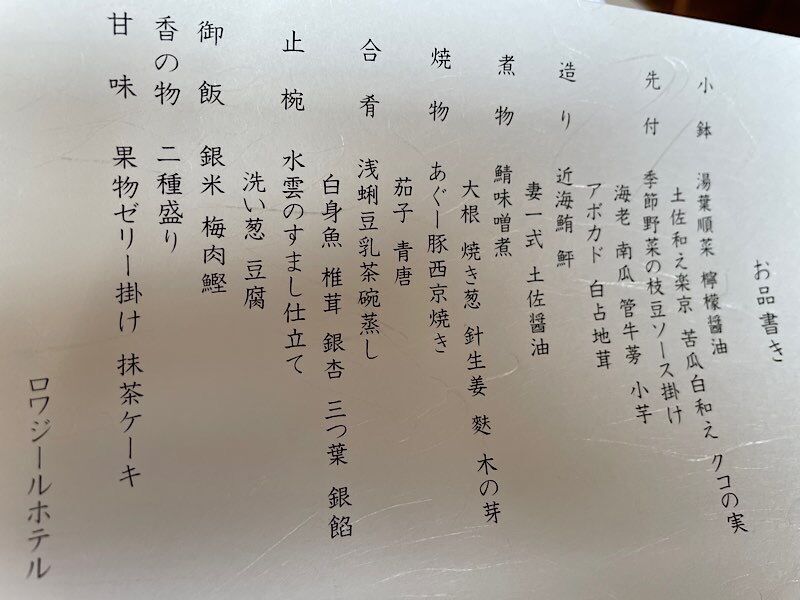 お品書き
小鉢 湯葉順菜 檸檬醤油 クコの実
土佐和え楽京 苦瓜白和え
先付 季節野菜の枝豆ソース掛け
海老 南瓜 管牛蒡 小芋
アボカド 白占地茸
造り 近海鮪 鮃
妻一式 土佐醤油
煮物 鯖味噌煮
大根 焼き葱 針生姜 麩 木の芽
焼物 あぐー豚西京焼き
茄子 青唐
合肴 浅蜊豆乳茶碗蒸し
白身魚 椎茸 銀杏 三つ葉 銀餡
止椀 水雲のすまし仕立て
洗い葱 豆腐
御飯 銀米 梅肉鰹
香の物 二種盛り
甘味 果物ゼリー掛け 抹茶ケーキ
ロワジールホテル